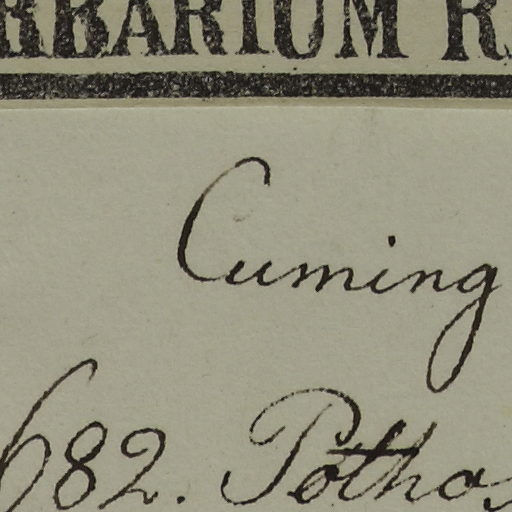 RBARIUM R
Cuming
682. Potho